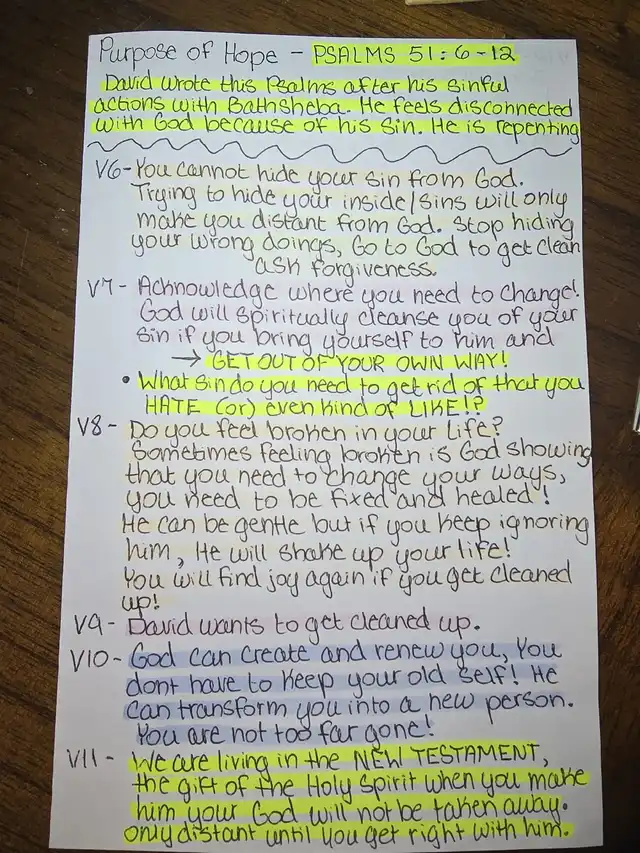 Purpose of Hope - PSALMS 51:6-12
David wrote this Psalms after his sinful
actions with Bathsheba. He feels disconnected
with God because of his sin. He is repenting
V6- You cannot hide your sin from God.
Trying to hide your inside/sins will only
make you distant from God. Stop hiding
your wrong doings, Go to God to get clean
ask forgiveness.
V7- Acknowledge where you need to change!
God will spiritually cleanse you of your
sin if you bring yourself to him and
→ GET OUT OF YOUR OWN WAY!
• What sin do you need to get rid of that you
HATE (or) even kind of LIKE!?
V8- Do you feel broken in your life?
Sometimes feeling broken is God showing
that you need to change your ways,
you need to be fixed and healed!
He can be gentle but if you keep ignoring
him, He will shake up your life!
You will find joy again if you get cleaned
up!
V9- David wants to get cleaned up.
V10- God can create and renew you, You
dont have to keep your old self! He
can transform you into a new person.
You are not too far gone!
V11- We are living in the NEW TESTAMENT,
the gift of the Holy Spirit when you make
him your God will not be taken away.
only distant until you get right with him.